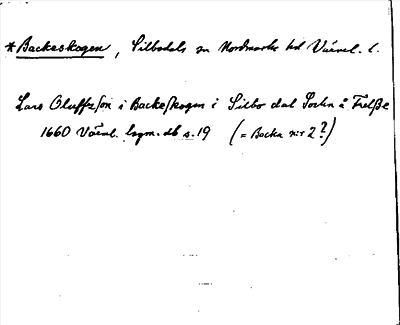 *Backeskogen, Silbodals sn Nordmarks hd Värml. l.
Lars Oluffzson i Backeskogen i Silbo dal Sochn å Frelße
1660 Värml. lagm. db s. 19 (= Backa n:r 2?)